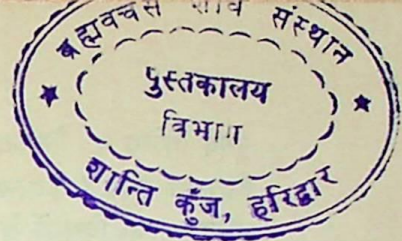 ब्रह्मवर्चस शोध संस्थान
पुस्तकालय
विभाग
शान्ति कुँज, हरिद्वार